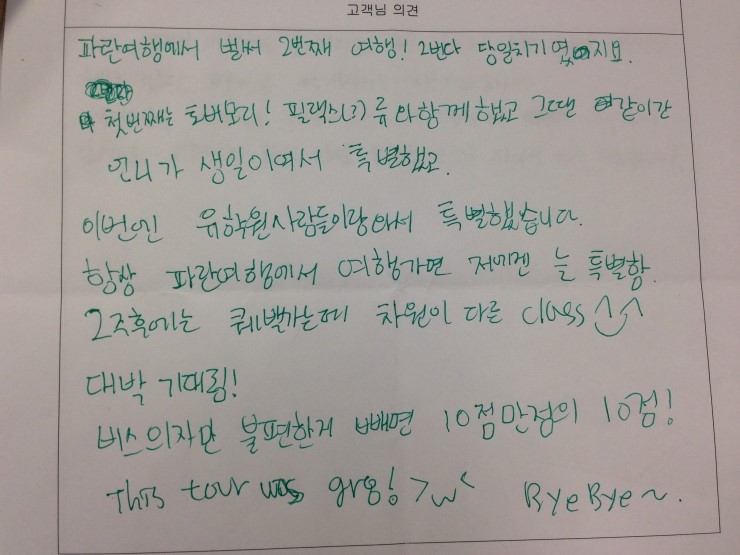 고객님 의견
파란여행에서 벌써 2번째 여행! 2번다 당일치기였지요.
첫번째는 토버모리! 필랙스(?)류와함께했고 그땐 같이간
언니가 생일이여서 특별했고.
이번엔 유학원사람들이랑와서 특별했습니다.
항상 파란여행에서 여행가면 저에겐 늘 특별함.
2주후에는 퀘백가는데 차원이 다른 class ^^
대박 기대됨!
버스의자만 불편한거 빼면 10점만점의 10점!
This tour was great! >w< Bye Bye~.